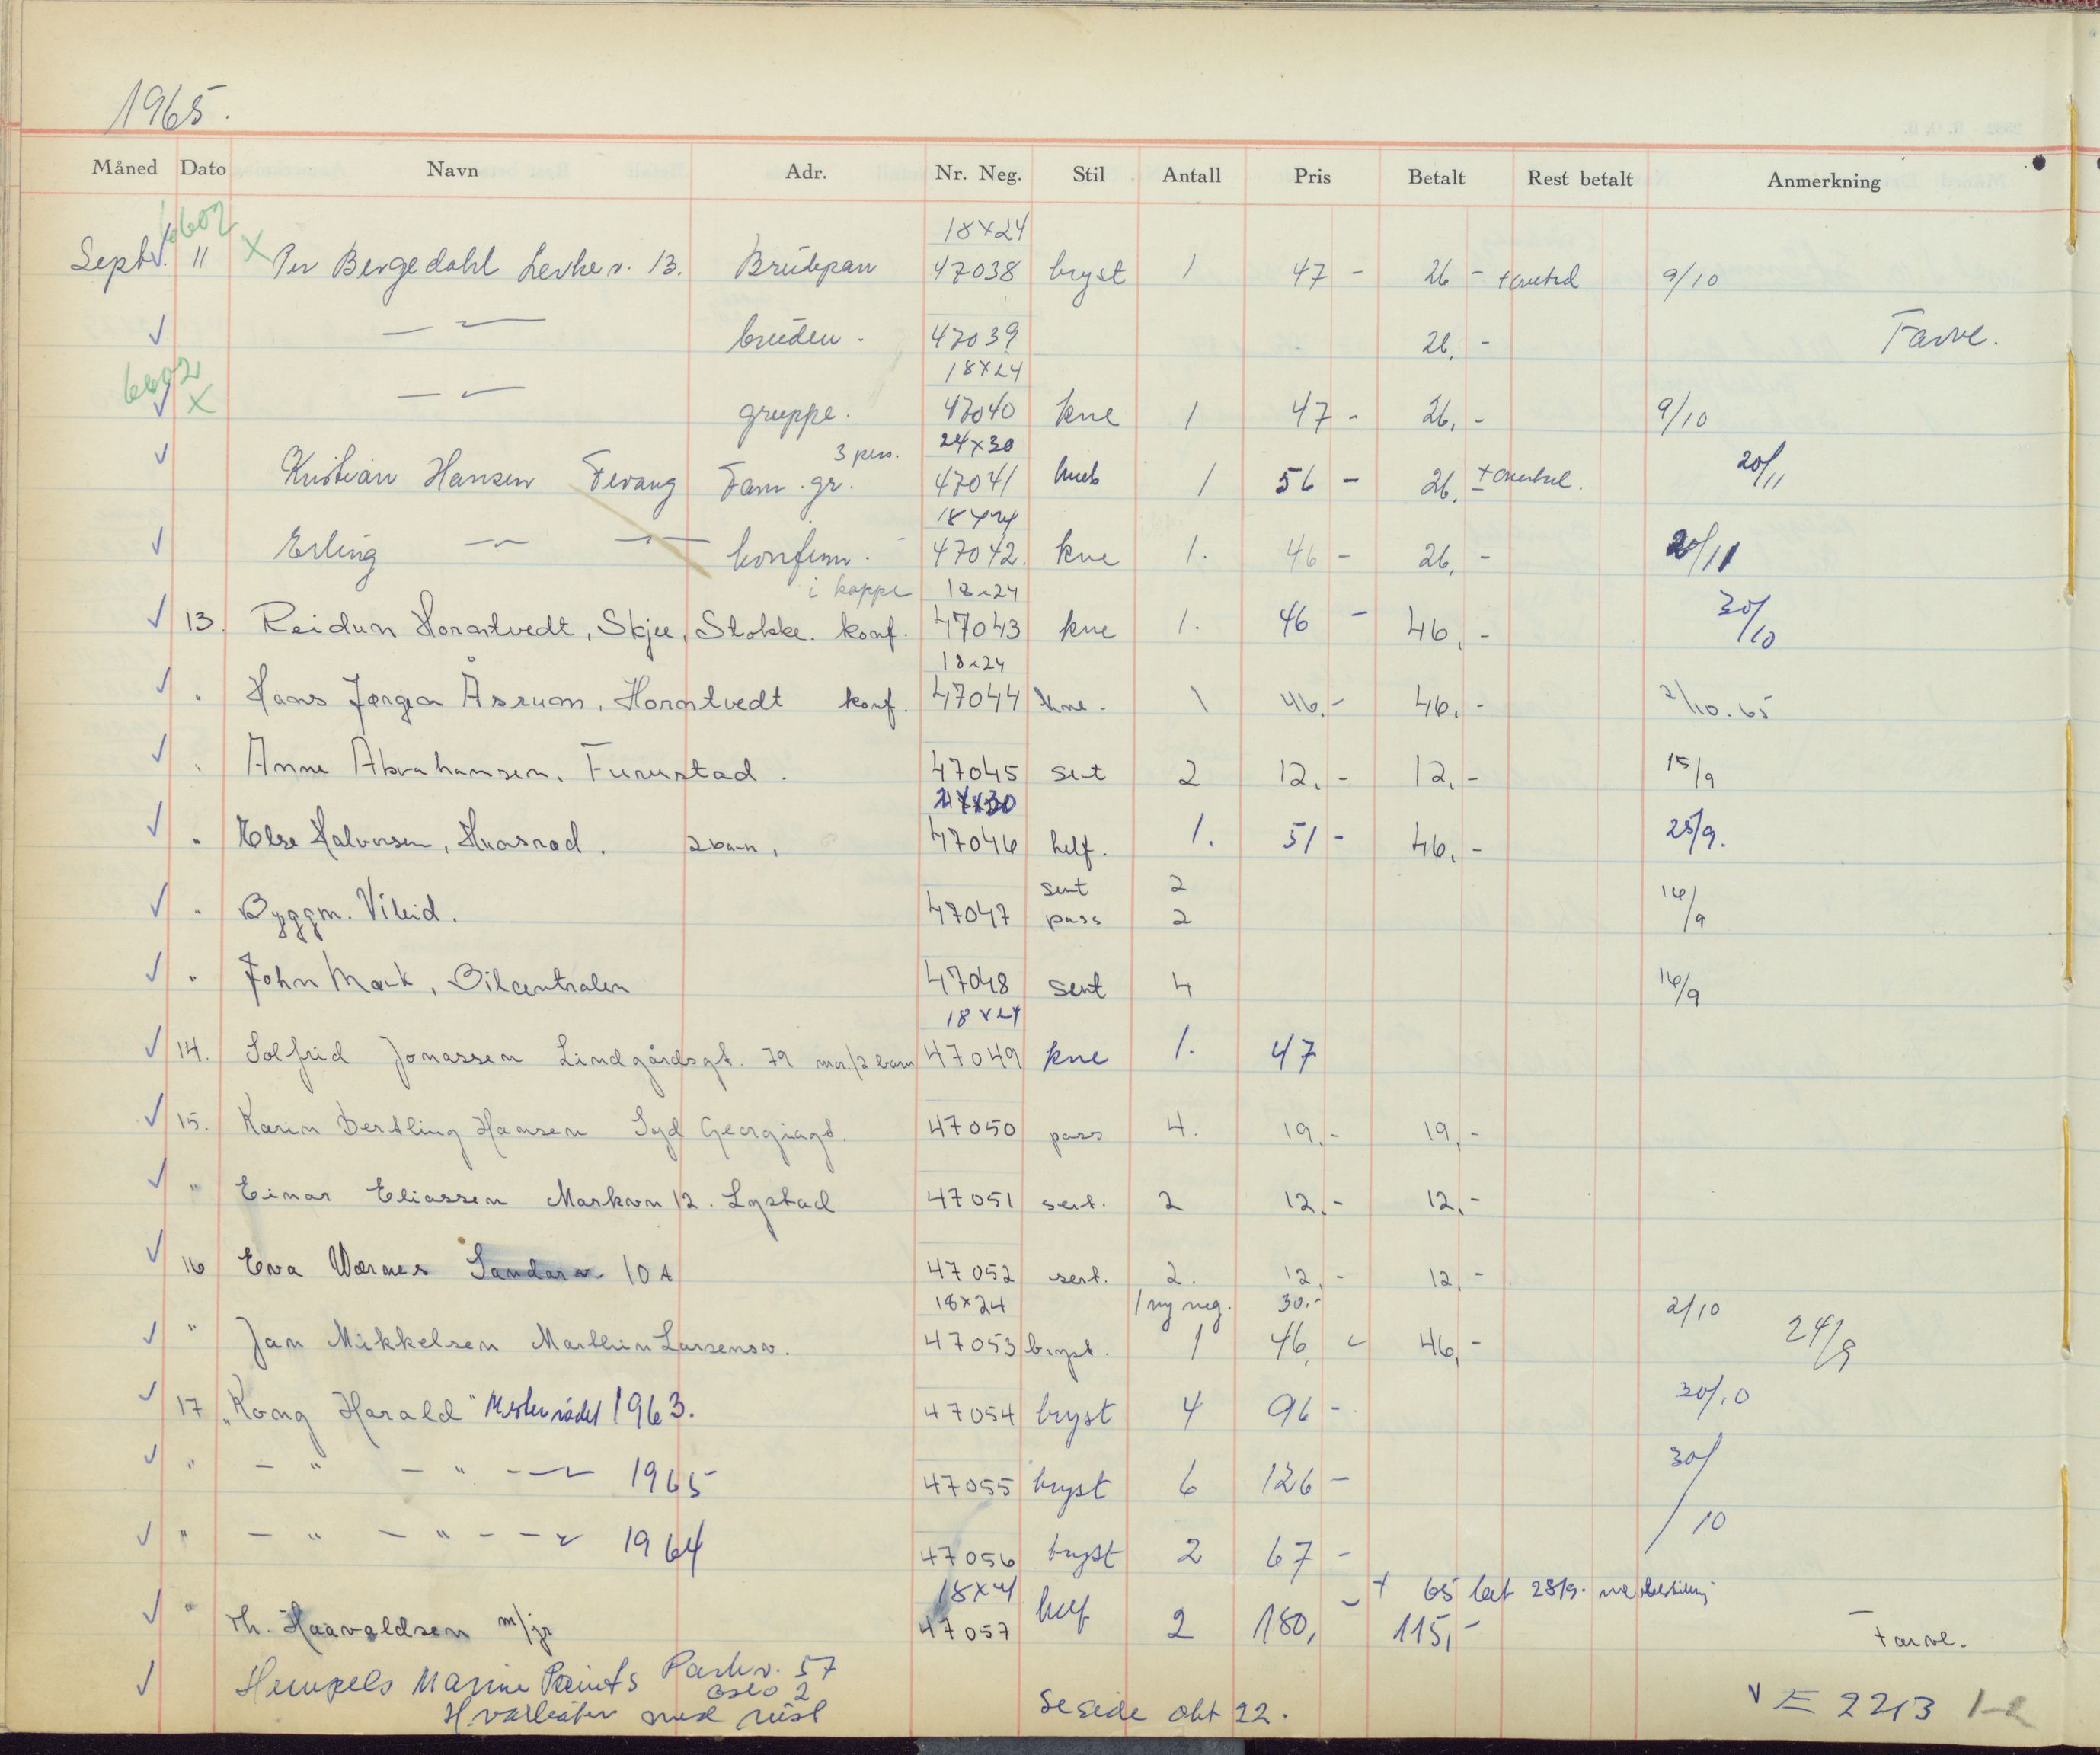 1965.
Måned Dato Navn Adr. Nr. Neg. Stil Antall Pris Betalt Rest betalt Anmerkning
6602 18x24
Sept. 11 X Per Bergedahl Lerkev. 13. Brudepar 47038 bryst 1 47 - 26 - 9/10
— — bruden. 47039 26,- Farve.
6602 X 18x24
— — gruppe. 47040 kne 1 47 - 26,- 9/10
3 pers. 24x30
Kristian Hansen Fevang Fam. gr. 47041 1 56 - 26,- 20/11
18x24
Erling — — konfirm. 47042. kne 1. 46 - 26,- 20/11
i kappe 18x24
13. Reidun Honastvedt, Skjee, Stokke. konf. 47043 kne 1. 46 - 46,- 30/10
18x24
" Hans Jørgen Åsrum, Honastvedt konf. 47044 kne. 1 46,- 46,- 2/10.65
" Anne Abrahamsen, Furustad. 47045 sert 2 12,- 12,- 15/9
24x30
" Else Halvorsen, Huasrød. 2 barn, 47046 helf. 1. 51 - 46,- 25/9.
sert 2
" Byggm. Virid. 47047 pass 2 16/9
" John Mørk, Bilcentralen 47048 sert 4 16/9
18x24
14. Solfrid Jonassen Lindgårdsgt. 79 mor/2 barn 47049 kne 1. 47
15. Karin Bertling Hansen Syd Georgiagt. 47050 pass 4. 19,- 19,-
" Einar Eliassen Markvn 12. Lystad 47051 sert. 2 12,- 12,-
16 Eva Wernes Sandarv. 10 A 47052 sert. 2. 12,- 12,-
18x24 1 ny neg. 30.- 2/10
" Jan Mikkelsen Marthin Larsensv. 47053 bryst. 1 46, - 46,- 24/9
17 "Kong Harald" Mesterrådet 1963. 47054 bryst 4 96 - 30/10
" — " — " — — 1965 47055 bryst 6 126 - 30/10
" — " — " — — 1964 47056 bryst 2 67 -
18x24 + 65 bet 28/9.
" Th. Haavaldsen m/jr 47057 helf 2 180,- 115,- Farve.
Hempels Marine Paints Parkv. 57
Oslo 2
Hvalbåter med rust se side okt 22. E 2213 1-2